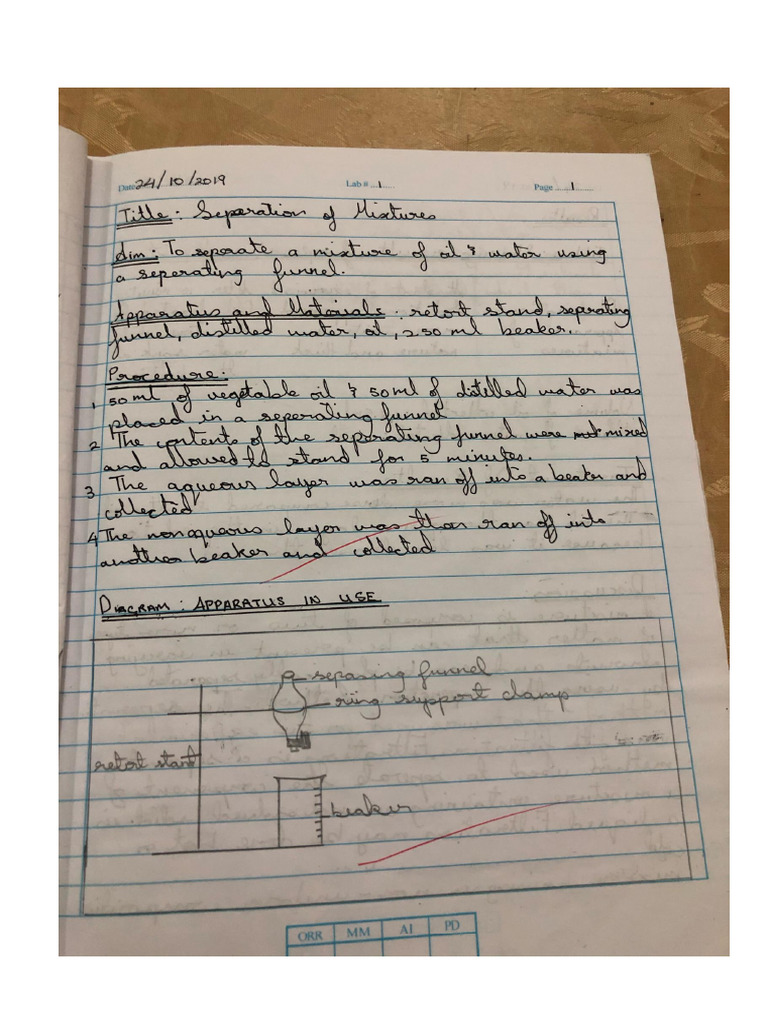 Date 24/10/2019 Lab # 1 Page 1
Title: Separation of Mixtures
Aim: To seperate a mixture of oil & water using
a seperating funnel.
Apparatus and Materials: retort stand, seperating
funnel, distilled water, oil, 250 ml beaker.
Procedure:
1 50ml of vegetable oil & 50ml of distilled water was
placed in a seperating funnel
2 The contents of the seperating funnel were mixed
and allowed to stand for 5 minutes.
3 The aqueous layer was ran off into a beaker and
collected
4 The nonaqueous layer was then ran off into
another beaker and collected
DIAGRAM: APPARATUS IN USE
separing funnel
ring support clamp
retort stand
beaker
ORR MM AI PD